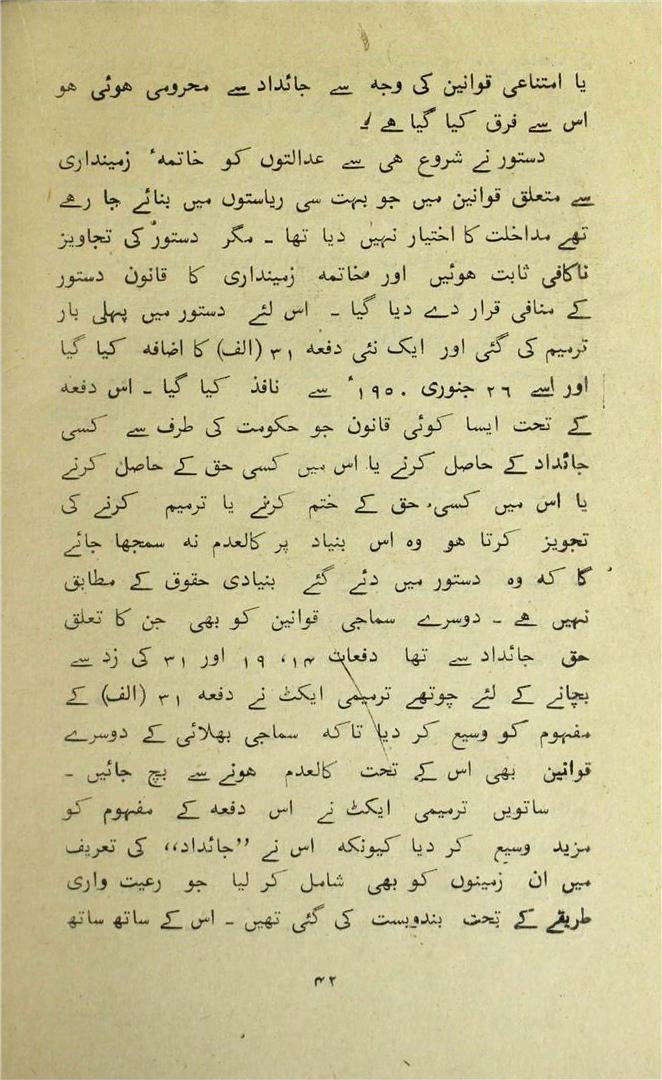 یا امتناعی قوانین کی وجہ سے جائداد سے محرومی ھوئی ھو
اس سے فرق کیا گیا ھے ۔
دستور نے شروع ھی سے عدالتوں کو خاتمہٴ زمینداری
سے متعلق قوانین میں جو بہت سی ریاستوں میں بنائے جا رھے
تھے مداخلت کا اختیار نہیں دیا تھا ۔ مگر دستور کی تجاویز
ناکافی ثابت ھوئیں اور خاتمہ زمینداری کا قانون دستور
کے منافی قرار دے دیا گیا ۔ اس لئے دستور میں پہلی بار
ترمیم کی گئی اور ایک نئی دفعہ ۳۱ (الف) کا اضافہ کیا گیا
اور اسے ۲۶ جنوری ۱۹۵۰ء سے نافذ کیا گیا ۔ اس دفعہ
کے تحت ایسا کوئی قانون جو حکومت کی طرف سے کسی
جائداد کے حاصل کرنے یا اس میں کسی حق کے حاصل کرنے
یا اس میں کسی حق کے ختم کرنے یا ترمیم کرنے کی
تجویز کرتا ھو وہ اس بنیاد پر کالعدم نہ سمجھا جائے
گا کہ وہ دستور میں دئے گئے بنیادی حقوق کے مطابق
نہیں ھے ۔ دوسرے سماجی قوانین کو بھی جن کا تعلق
حق جائداد سے تھا دفعات ۱۴، ۱۹ اور ۳۱ کی زد سے
بچانے کے لئے چوتھے ترمیمی ایکٹ نے دفعہ ۳۱ (الف) کے
مفہوم کو وسیع کر دیا تاکہ سماجی بھلائی کے دوسرے
قوانین بھی اس کے تحت کالعدم ھونے سے بچ جائیں ۔
ساتویں ترمیمی ایکٹ نے اس دفعہ کے مفہوم کو
مزید وسیع کر دیا کیونکہ اس نے ’’جائداد،، کی تعریف
میں ان زمینوں کو بھی شامل کر لیا جو رعیت واری
طریقے کے تحت بندوبست کی گئی تھیں ۔ اس کے ساتھ ساتھ
۴۲